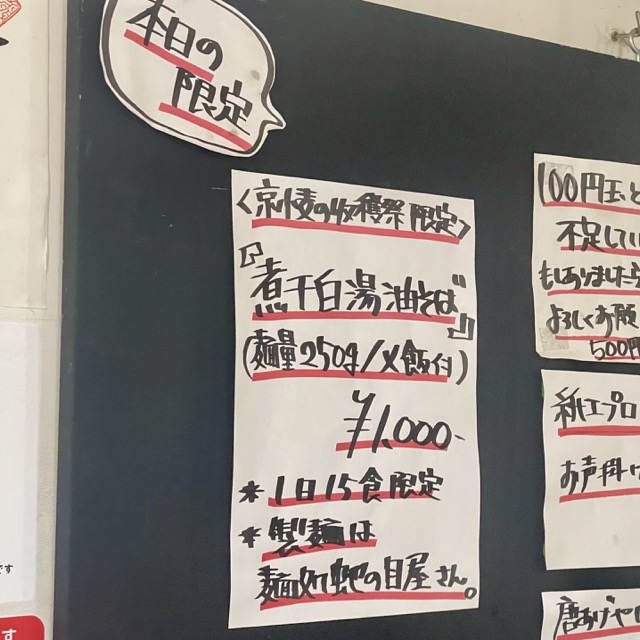 本日の
限定
<京小麦の収穫祭 限定>
『煮干白湯油そば』
(麺量250g/〆飯付)
¥1,000-
*1日15食限定
*製麺は
麺処虵の目屋さん。
100円玉と
不足してい
もしありましたら
よろしくお願
500円
紙エプロ
お声掛け
唐あげや
です
す